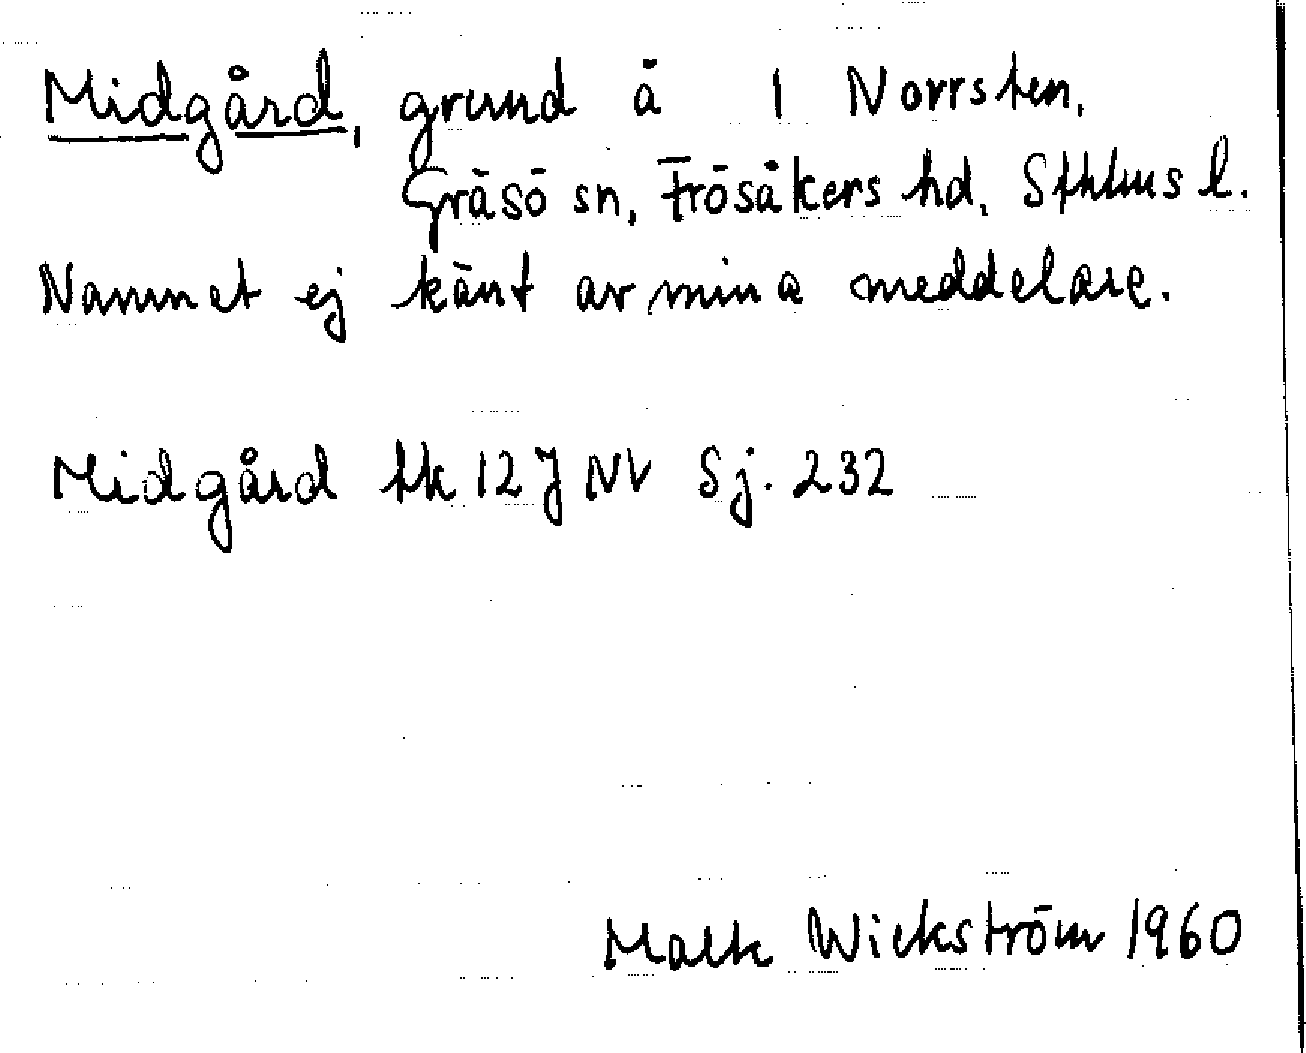 Midgård, grund å 1 Norrsten,
Gräsö sn, Frösåkers hd, Sthlms l.
Namnet ej känt av mina meddelare.
Midgård tk 12J NV Sj. 232
Math Wickström 1960